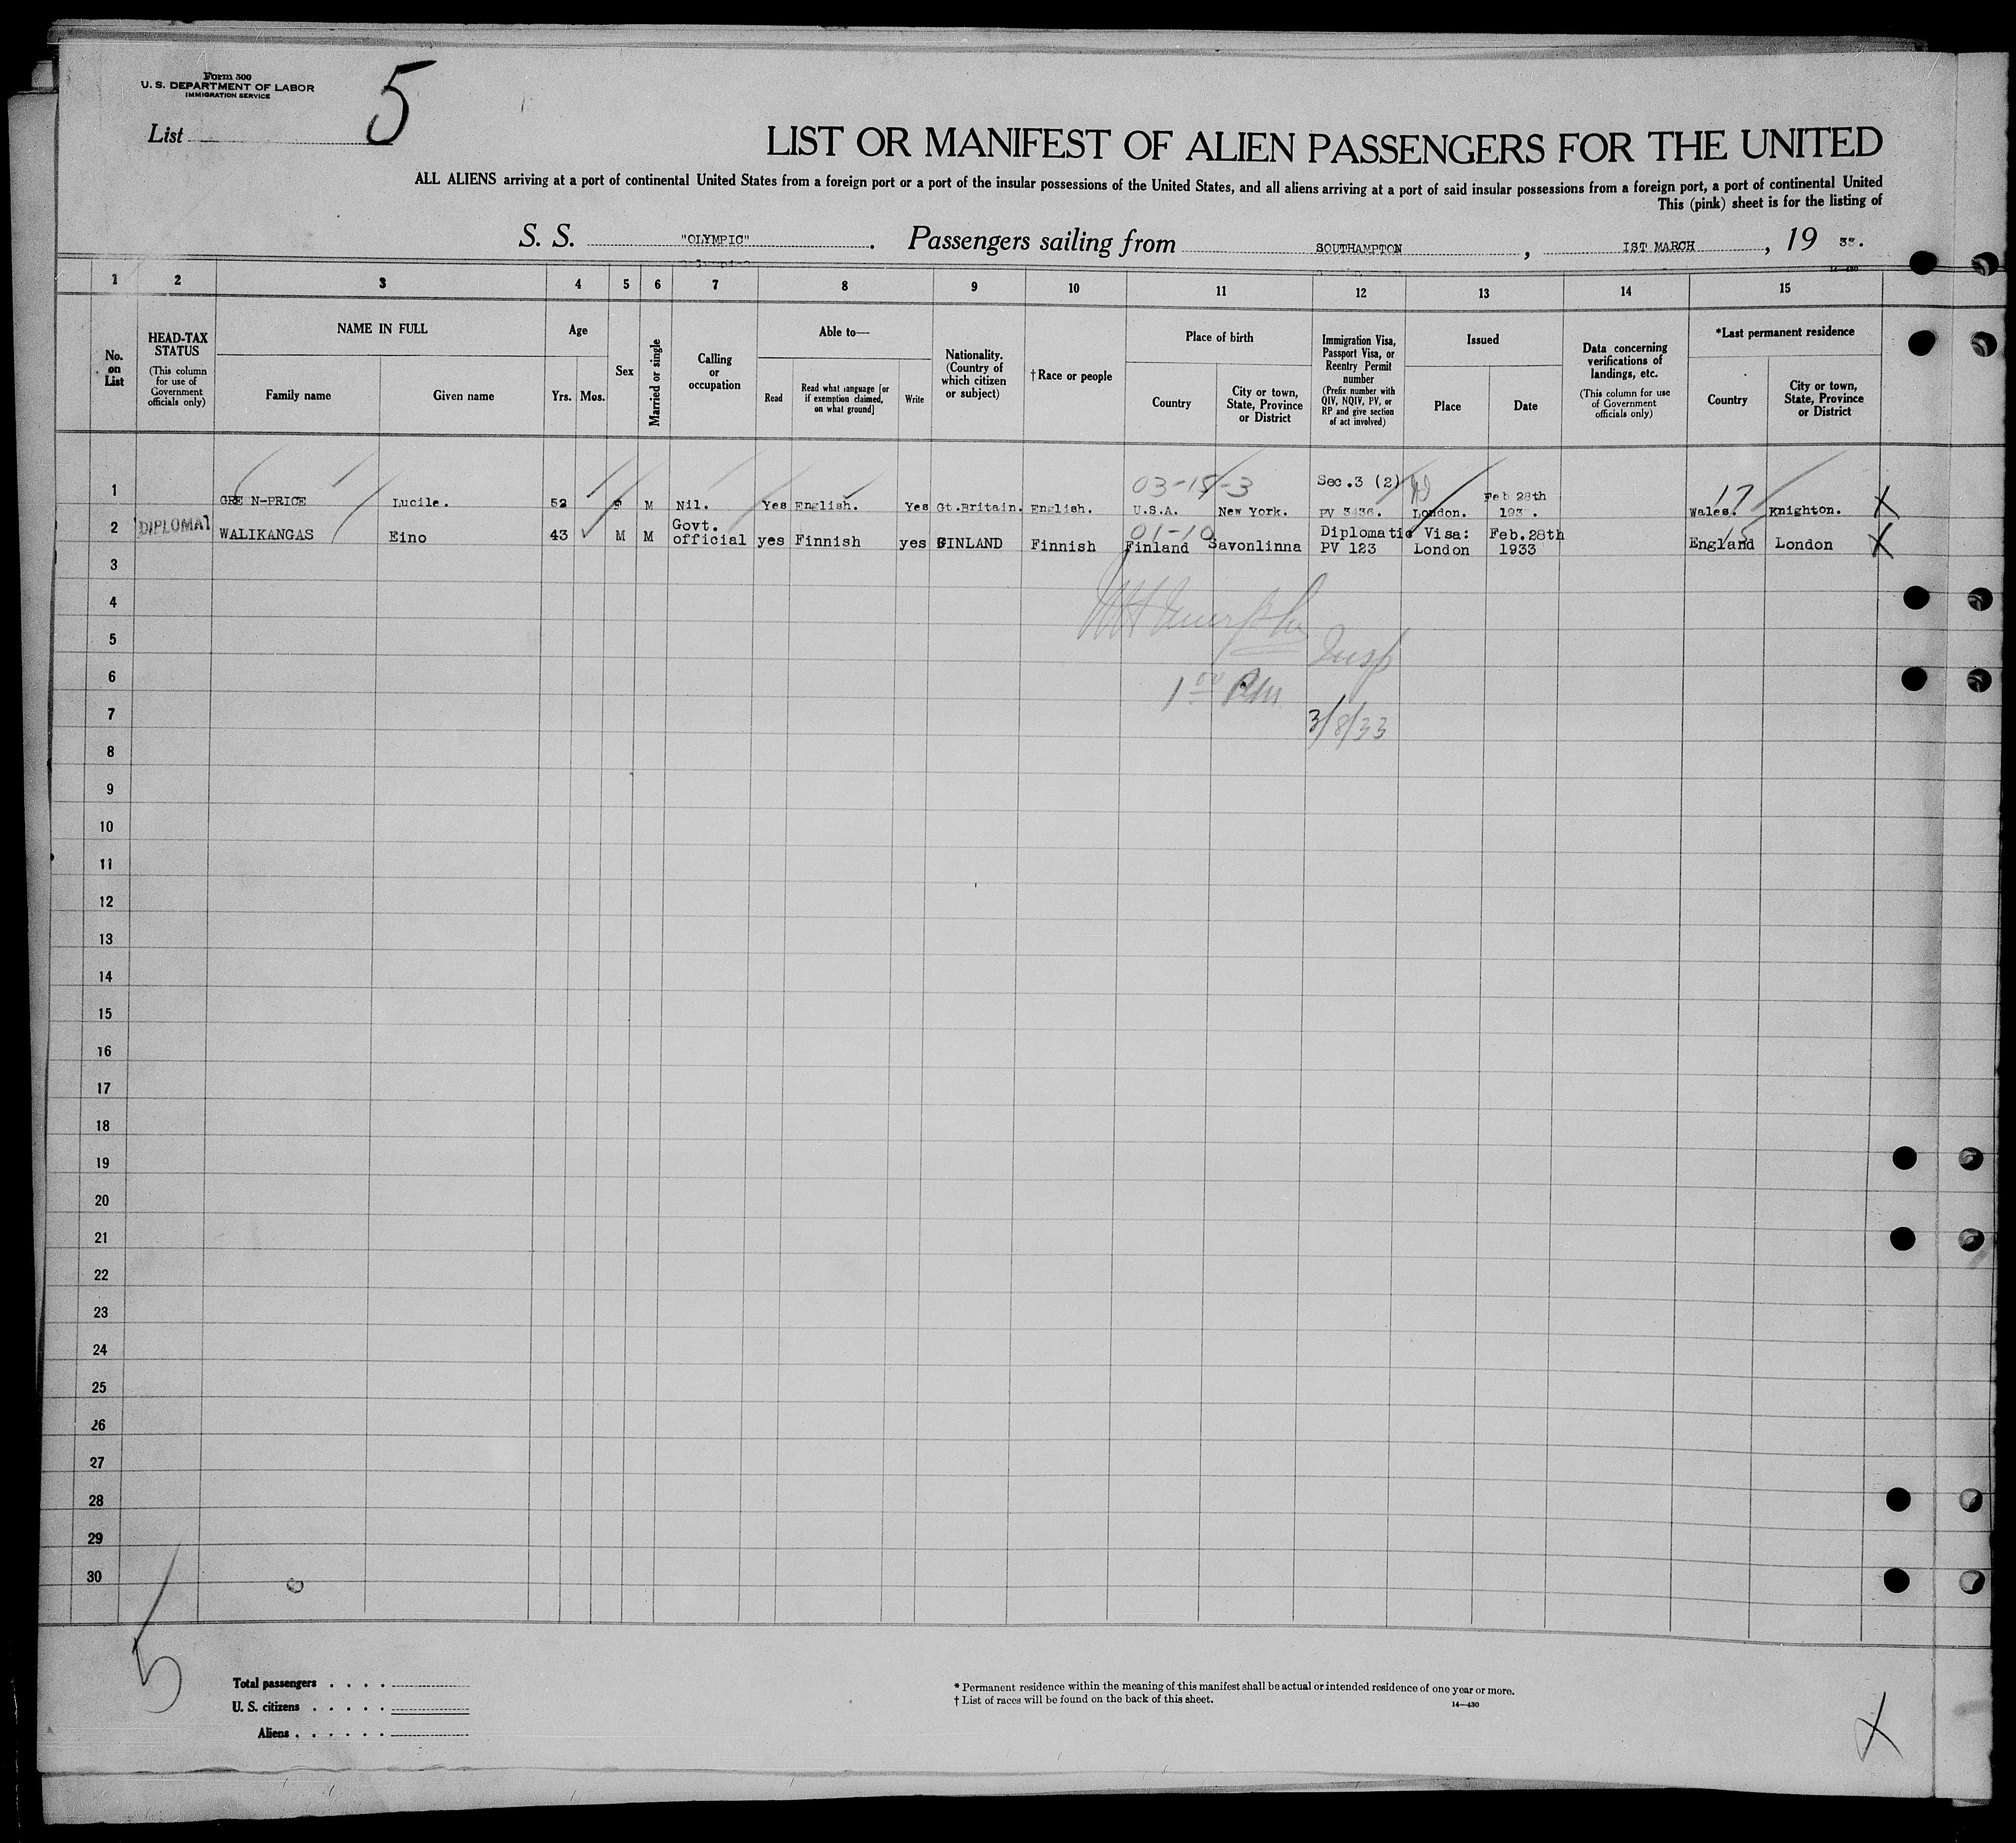 Form 500
U. S. DEPARTMENT OF LABOR
IMMIGRATION SERVICE
List 5
LIST OR MANIFEST OF ALIEN PASSENGERS FOR THE UNITED
ALL ALIENS arriving at a port of continental United States from a foreign port or a port of the insular possessions of the United States, and all aliens arriving at a port of said insular possessions from a foreign port, a port of continental United
This (pink) sheet is for the listing of
S. S. "OLYMPIC". Passengers sailing from SOUTHAMPTON, IST MARCH, 19 33.
14-430
1 2 3 4 5 6 7 8 9 10 11 12 13 14 15
No. on List
HEAD-TAX STATUS (This column for use of Government officials only)
NAME IN FULL
Family name
Given name
Age
Yrs.
Mos.
Sex
Married or single
Calling or occupation
Able to—
Read
Read what language [or if exemption claimed, on what ground]
Write
Nationality. (Country of which citizen or subject)
† Race or people
Place of birth
Country
City or town, State, Province or District
Immigration Visa, Passport Visa, or Reentry Permit number (Prefix number with QIV, NQIV, PV, or RP and give section of act involved)
Issued
Place
Date
Data concerning verifications of landings, etc. (This column for use of Government officials only)
*Last permanent residence
Country
City or town, State, Province or District
03-15-3 Sec.3 (2) 17
1 GRE N-PRICE Lucile. 52 F M Nil. Yes English. Yes Gt.Britain. English. U.S.A. New York. PV 3436. London. Feb 28th 193 . Wales. Knighton. X
01-10 15
2 DIPLOMAT WALIKANGAS Eino 43 M M Govt. official yes Finnish yes FINLAND Finnish Finland Savonlinna Diplomatic Visa: PV 123 London Feb.28th 1933 England London X
3
4
5
Insp
6
1 00 P.M.
7
3/8/33
8
9
10
11
12
13
14
15
16
17
18
19
20
21
22
23
24
25
26
27
28
29
30
5
Total passengers . . . .
U. S. citizens . . . . .
Aliens . . . . . .
* Permanent residence within the meaning of this manifest shall be actual or intended residence of one year or more.
† List of races will be found on the back of this sheet.
14—430
X